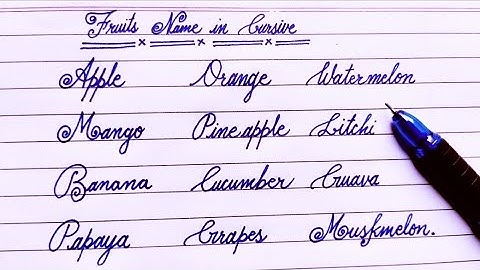 Fruits Name in Cursive
Apple Orange Watermelon
Mango Pineapple Litchi
Banana Cucumber Guava
Papaya Grapes Muskmelon.